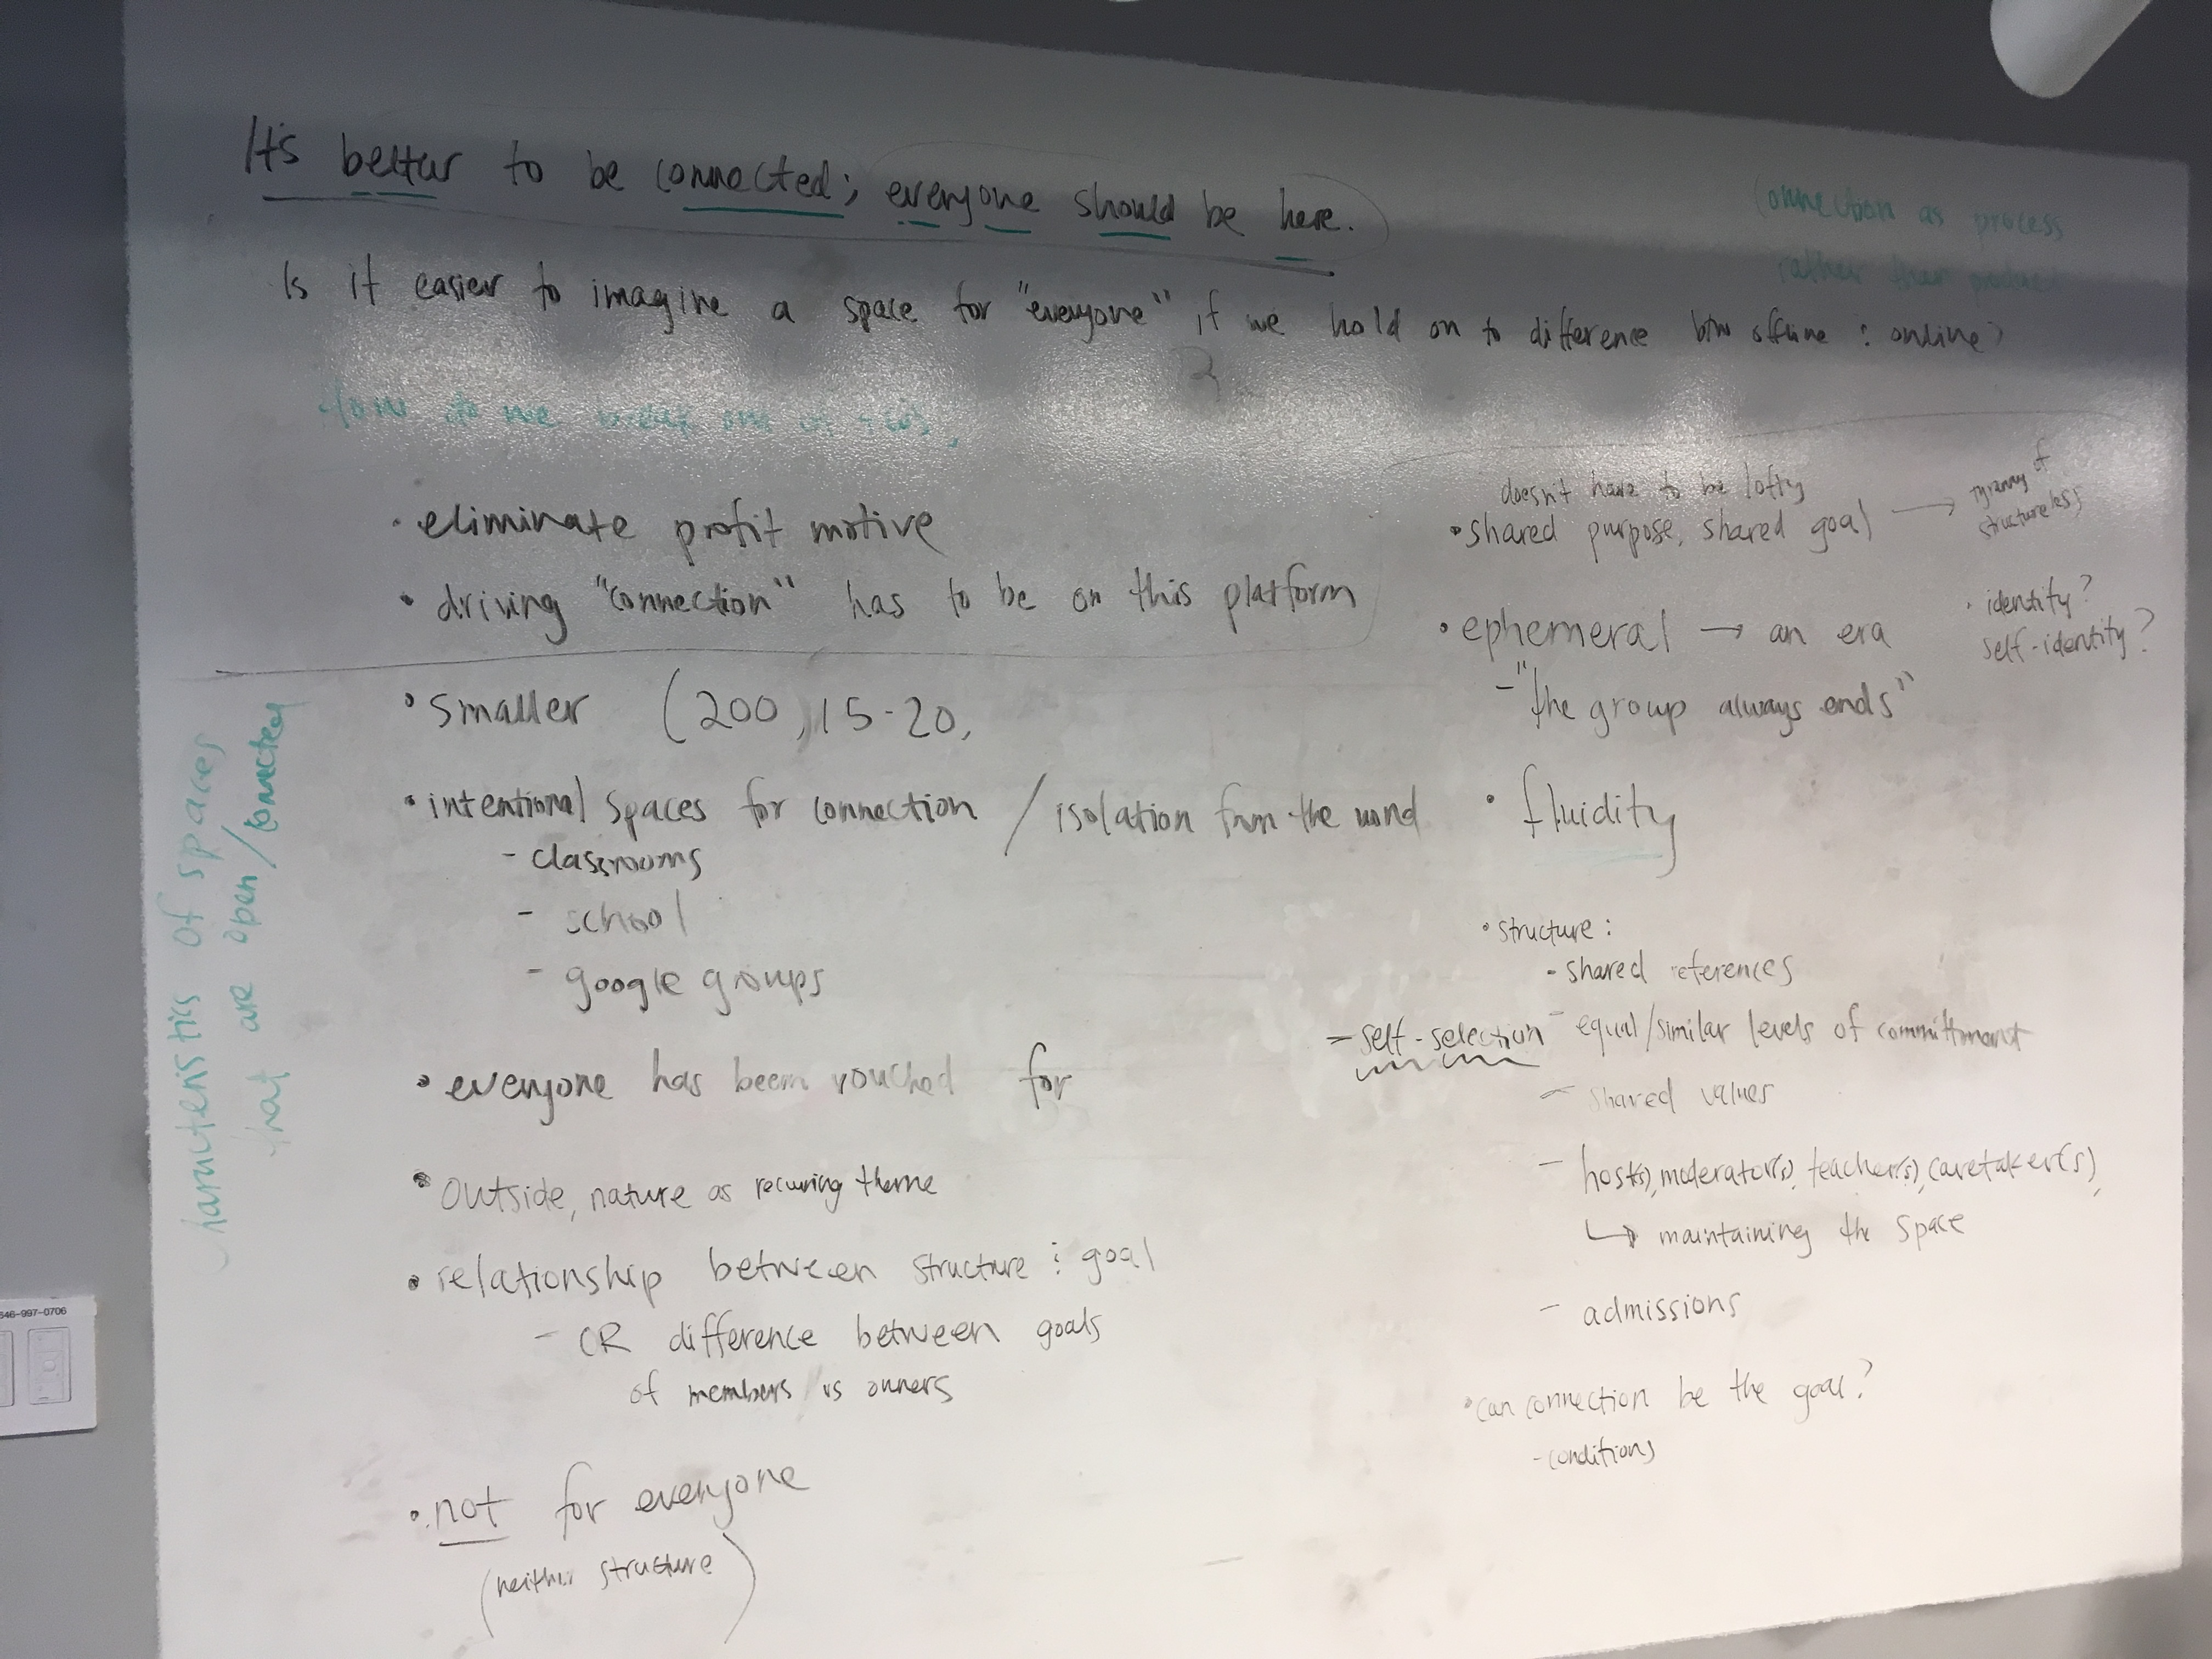 It's better to be connected; everyone should be here.
connection as process
rather than product
Is it easier to imagine a space for "everyone" if we hold on to difference btw offline & online?
how do we break out of this,
• eliminate profit motive
• driving "connection" has to be on this platform
• smaller (200, 15-20,
• intentional spaces for connection / isolation from the world
- classrooms
- school
- google groups
• everyone has been vouched for
• outside, nature as recurring theme
• relationship between structure & goal
- CR difference between goals
of members vs owners
• not for everyone
(neither structure )
characteristics of spaces
that are open/connected
doesn't have to be lofty
• shared purpose, shared goal → tyranny of
structureless
• ephemeral → an era
- "the group always ends"
• identity?
self-identity?
• fluidity
• structure:
- shared references
- self-selection - equal/similar levels of committment
- shared values
- host(s), moderator(s), teacher(s), caretaker(s),
↳ maintaining the space
- admissions
• can connection be the goal?
- conditions
646-997-0706